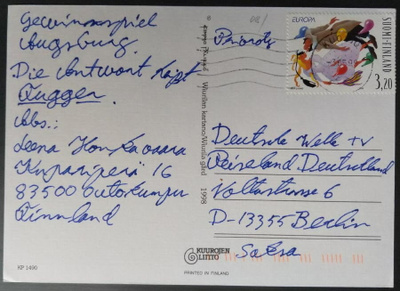 Gewinnspiel
Augsburg.
Die Antwort heißt
Fugger.
Abs.:
Leena Honkavaara
Kuparipera 16
83500 Outokumpu
Finnland
KP 1490
1998
KUUROJEN
LIITTO
PRINTED IN FINLAND
Priority
EUROPA
SUOMI-FINLAND
3,20
Deutsche Welle TV
Reiseland Deutschland
Voltastrasse 6
D-13355 Berlin
Saksa